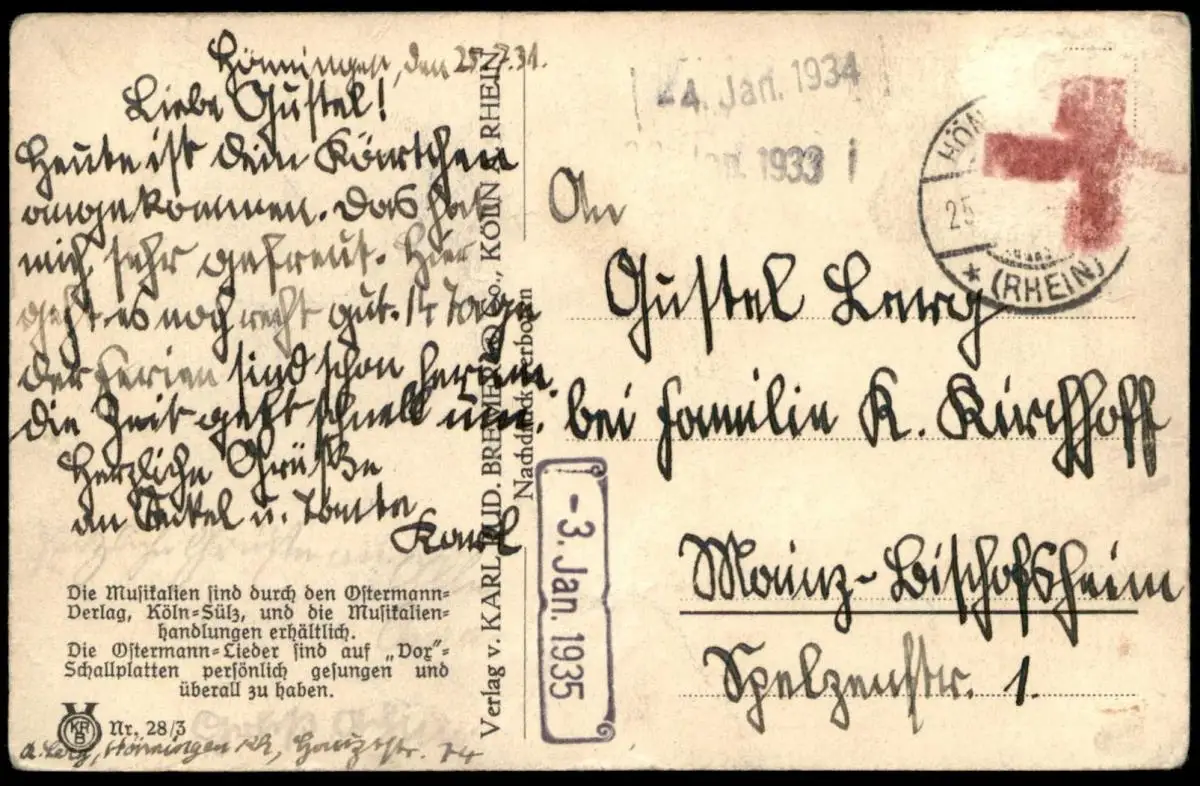 Hönningen, den 25.7.31.
Liebe Gustel!
Heute ist dein Kärtchen
angekommen. Das hat
mich sehr gefreut. Hier
geht es noch recht gut. 14 Tage
der Ferien sind schon herum,
die Zeit geht schnell um.
Herzliche Grüße
an Onkel u. Tante
Karl
Die Musikalien sind durch den Ostermann=
Verlag, Köln=Sülz, und die Musikalien=
handlungen erhältlich.
Die Ostermann=Lieder sind auf „Vox"=
Schallplatten persönlich gesungen und
überall zu haben.
KRB
Nr. 28/3
Hönningen Rh, Hauptstr. 74
Verlag v. KARL RUD. BREMER & Co., KÖLN A. RHEIN
Nachdruck verboten
-4. Jan. 1934
1933
-3. Jan. 1935
HÖN
25
(RHEIN)
An
Gustel Lerg
bei Familie K. Kirchhoff
Mainz-Bischofsheim
Spelzenstr. 1.